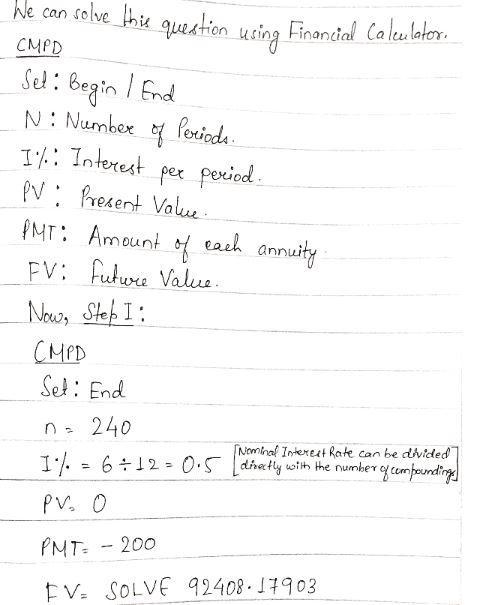 We can solve this question using Financial Calculator.
CMPD
Set: Begin / End
N: Number of Periods.
I%: Interest per period.
PV: Present Value.
PMT: Amount of each annuity.
FV: Future Value.
Now, Step I:
CMPD
Set: End
n = 240
I% = 6 ÷ 12 = 0.5 [Nominal Interest Rate can be divided
directly with the number of compoundings]
PV= 0
PMT= - 200
FV= SOLVE 92408.17903